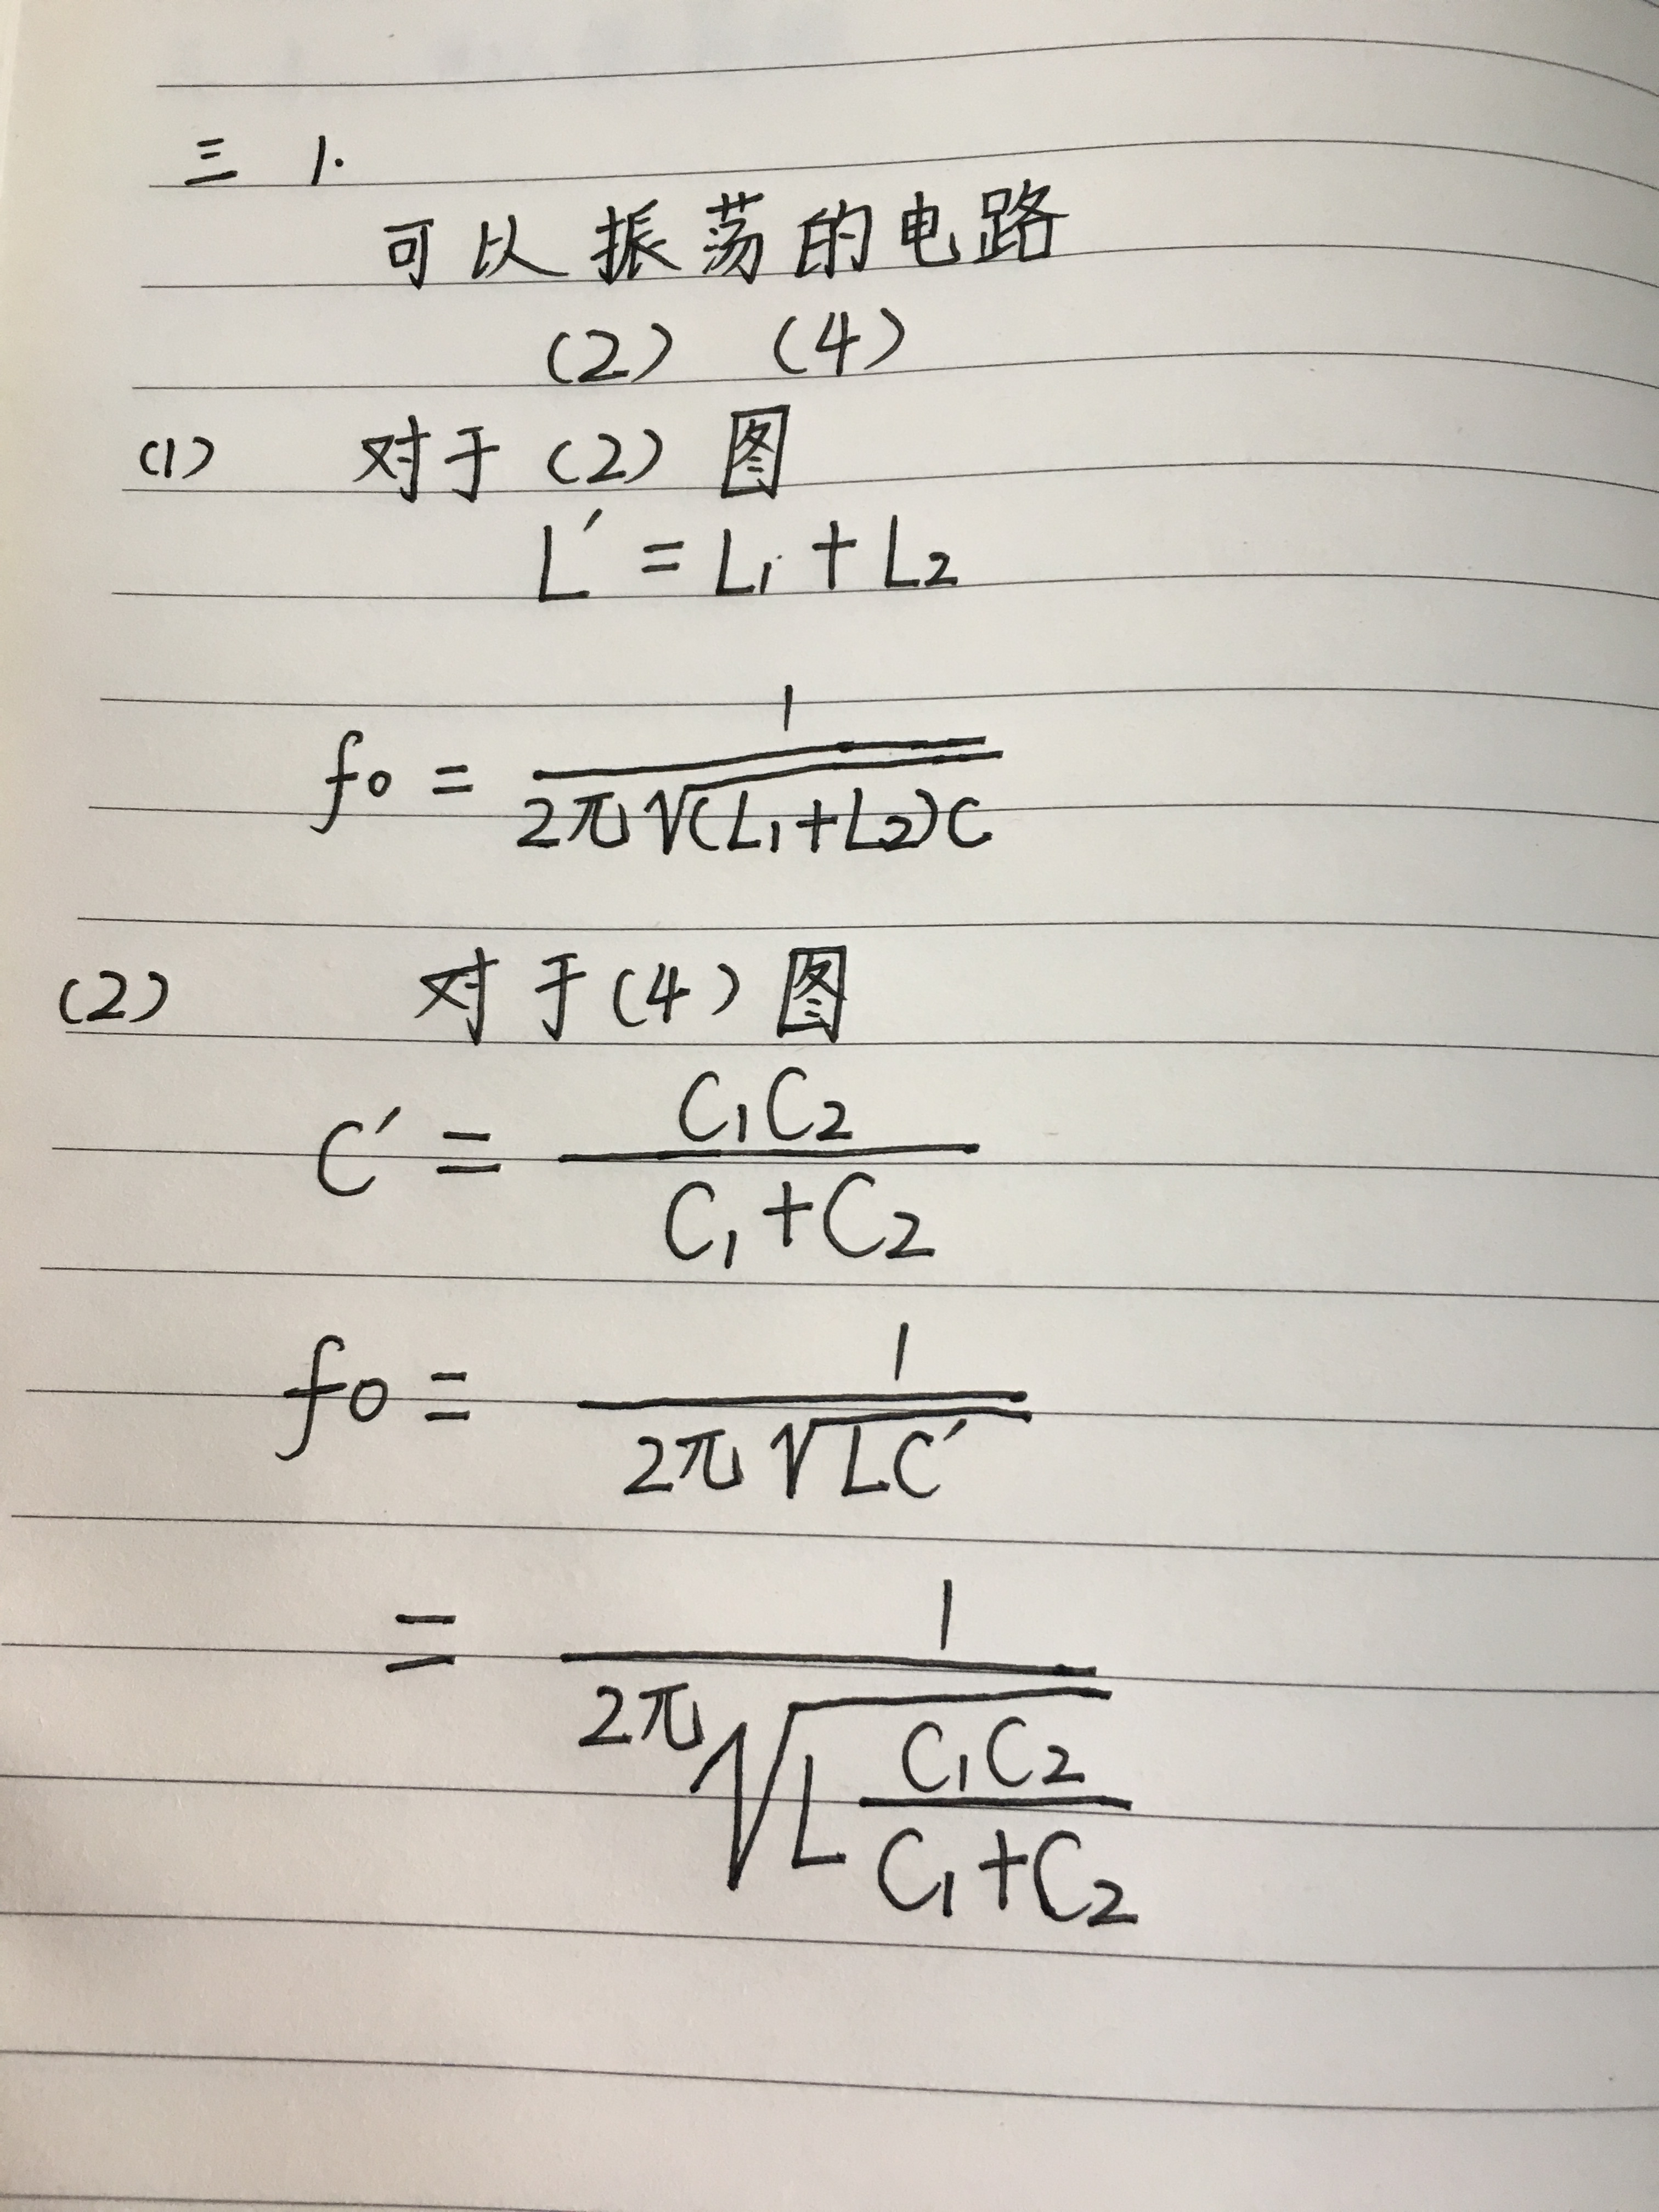 三 1.
可以振荡的电路
(2) (4)
(1) 对于(2)图
L′ = L₁ + L₂
f₀ = 1 / (2π√((L₁+L₂)C))
(2) 对于(4)图
C′ = C₁C₂ / (C₁+C₂)
f₀ = 1 / (2π√(LC′))
= 1 / (2π√(L C₁C₂ / (C₁+C₂)))